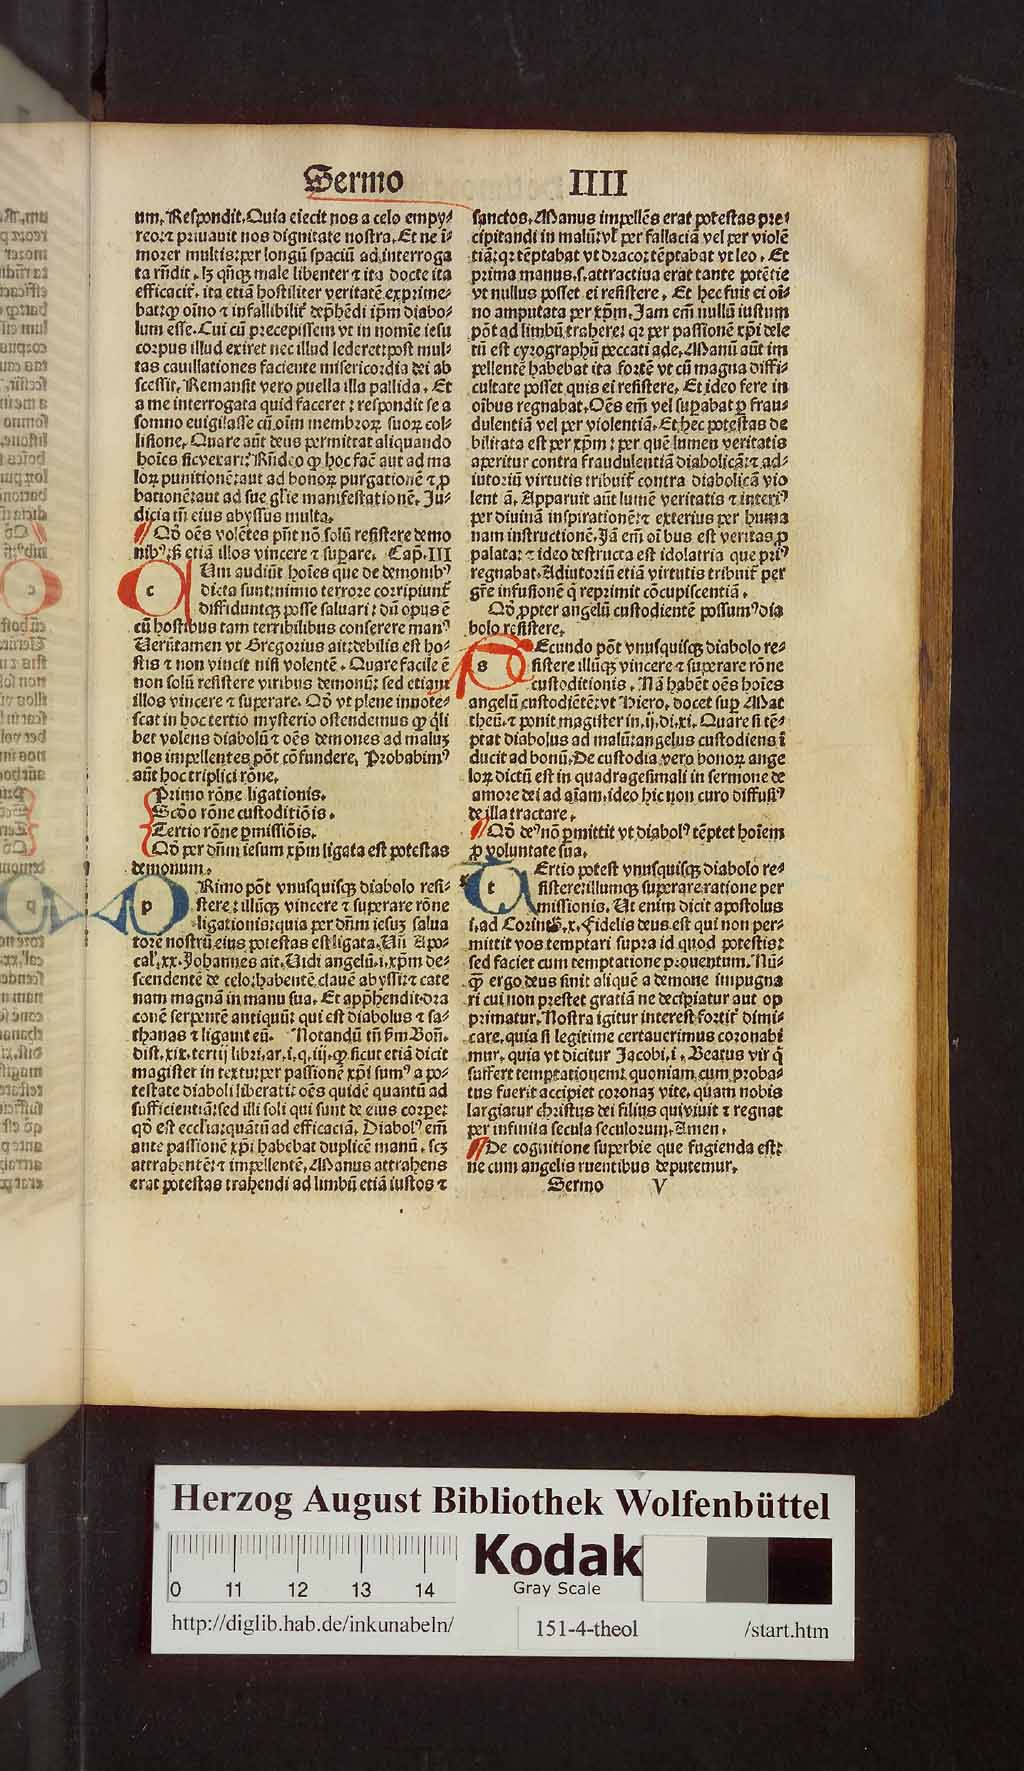 Sermo IIII
um. Respondit. Quia eiecit nos a celo empy⸗
reo: ⁊ priuauit nos dignitate nostra. Et ne ī⸗
morer multis: per longū spaciū ad interroga
ta rñdit. lꝫ qñqꝫ male libenter ⁊ ita docte ita
efficacit̄. ita etiā hostiliter veritatē exprime⸗
bat: ꝙ oīno ⁊ infallibilit̄ dep̄hēdi ip̄m diabo⸗
lum esse. Cui cū precepissem vt in noīe iesu
corpus illud exiret nec illud lederet: post mul⸗
tas cauillationes faciente misericordia dei ab
scessit. Remansit vero puella illa pallida. Et
a me interrogata quid faceret: respondit se a
somno euigilasse cū oīm membroꝝ suoꝝ col⸗
lisione. Quare aūt deus permittat aliquando
hoīes sic vexari: Rñdeo ꝙ hoc facē aut ad ma
loꝝ punitionē: aut ad bonoꝝ purgationē ⁊ ꝓ
bationē: aut ad sue gl̄ie manifestationē. Ju⸗
dicia tn̄ eius abyssus multa.
Qō oēs volētes pn̄t nō solū resistere demo
nibꝰ: sꝫ etiā illos vincere ⁊ suꝑare. Cap̄. III
cUm audiūt hoīes que de demonibꝰ
dicta sunt: nimio terrore corripiunt̄
diffiduntqꝫ posse saluari: dū opus ē
cū hostibus tam terribilibus conserere manꝰ
Uerūtamen vt Gregorius ait: debilis est ho⸗
stis ⁊ non vincit nisi volentē. Quare facile ē
non solū resistere viribus demonū: sed etiam
illos vincere ⁊ superare. Qō vt plene innote⸗
scat in hoc tertio mysterio ostendemus ꝙ q̄li
bet volens diabolū ⁊ oēs demones ad maluꝫ
nos impellentes pōt cōfundere. Probabimꝰ
aūt hoc triplici rōne.
Primo rōne ligationis.
Scdo rōne custoditiōis.
Tertio rōne ꝑmissiōis.
Qō per dn̄m iesum xp̄m ligata est potestas
demonum.
pRimo pōt vnusquisqꝫ diabolo resi⸗
stere: illūqꝫ vincere ⁊ superare rōne
ligationis: quia per dn̄m iesuꝫ salua
torē nostrū eius potestas est ligata. Uñ Apo⸗
cal̄. xx. Johannes ait. Uidi angelū. i. xp̄m de⸗
scendentē de celo: habentē clauē abyssi: ⁊ cate
nam magnā in manu sua. Et app̄hendit dra
conē serpentē antiquū: qui est diabolus ⁊ sa⸗
thanas ⁊ ligauit eū. Notandū tn̄ ẜm Boñ.
dist. xix. tertij libri. ar. i. q. iij. ꝙ sicut etiā dicit
magister in textu: per passionē xp̄i sumꝰ a po⸗
testate diaboli liberati: oēs quidē quantū ad
sufficientiā: sed illi soli qui sunt de eius corpe:
qō est ecclīa: quātū ad efficaciā. Diabolꝰ em̄
ante passionē xp̄i habebat duplicē manū. scꝫ
attrahentē: ⁊ impellentē. Manus attrahens
erat potestas trahendi ad limbū etiā iustos ⁊
sanctos. Manus impellēs erat potestas pre⸗
cipitandi in malū: vl̄ per fallaciā vel per violē
tiā: qꝛ tēptabat vt draco: tēptabat vt leo. Et
prima manus. s. attractiua erat tante potētie
vt nullus posset ei resistere. Et hec fuit ei oī⸗
no amputata per xp̄m. Jam em̄ nullū iustum
pōt ad limbū trahere: qꝛ per passionē xp̄i dele
tū est cyrographū peccati ade. Manū aūt im
pellentē habebat ita fortē vt cū magna diffi⸗
cultate posset quis ei resistere. Et ideo fere in
oībus regnabat. Oēs em̄ vel suꝑabat ꝑ frau⸗
dulentiā vel per violentiā. Et hec potestas de
bilitata est per xp̄m: per quē lumen veritatis
aperitur contra fraudulentiā diabolicā: ⁊ ad⸗
iutoriū virtutis tribuit̄ contra diabolicā vio
lent ā. Apparuit aūt lumē veritatis ⁊ interiꝰ
per diuinā inspirationē: ⁊ exterius per huma
nam instructionē. Jā em̄ oī bus est veritas ꝓ
palata: ⁊ ideo destructa est idolatria que priꝰ
regnabat. Adiutoriū etiā virtutis tribuit̄ per
gr̄e infusionē q̄ reprimit cōcupiscentiā.
Qō ꝓpter angelū custodientē possumꝰ dia
bolo resistere.
sEcundo pōt vnusquisqꝫ diabolo re⸗
sistere illūqꝫ vincere ⁊ superare rōne
custoditionis. Nā habēt oēs hoīes
angelū custodiētē: vt Hiero. docet suꝑ Mat
theū. ⁊ ponit magister in. ij. di. xi. Quare si tē⸗
ptat diabolus ad malū: angelus custodiens ī
ducit ad bonū. De custodia vero bonoꝝ ange
loꝝ dictū est in quadragesimali in sermone de
amore dei ad aīam. ideo hic non curo diffusiꝰ
de illa tractare.
Qō deꝰ nō ꝑmittit vt diabolꝰ tēptet hoīem
ꝓ voluntate sua.
tErtio potest vnusquisqꝫ diabolo re⸗
sistere: illumqꝫ superare ratione per
missionis. Ut enim dicit apostolus
i. ad Corinth. x. Fidelis deus est qui non per⸗
mittit vos temptari supra id quod potestis:
sed faciet cum temptatione prouentum. Nū⸗
ꝙ̄ ergo deus sinit aliquē a demone impugna
ri cui non prestet gratiā ne decipiatur aut op
primatur. Nostra igitur interest fortit̄ dimi⸗
care. quia si legitime certauerimus coronabi
mur. quia vt dicitur Jacobi. i. Beatus vir q̄
suffert temptationem: quoniam cum proba⸗
tus fuerit accipiet coronaꝫ vite. quam nobis
largiatur christus dei filius qui viuit ⁊ regnat
per infinita secula seculorum. Amen.
De cognitione superbie que fugienda est:
ne cum angelis ruentibus deputemur.
Sermo V
Herzog August Bibliothek Wolfenbüttel
Kodak
Gray Scale
0 11 12 13 14
http://diglib.hab.de/inkunabeln/ 151-4-theol /start.htm